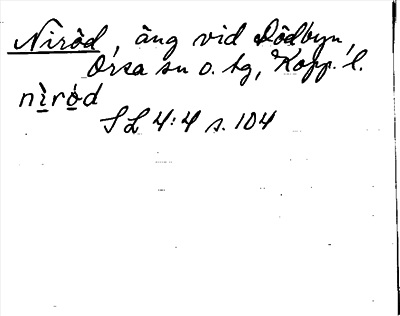 Niröd, äng vid Dödbyn,
Orsa sn o. tg, Kopp. l.
nìród
SL 4:4 s. 104